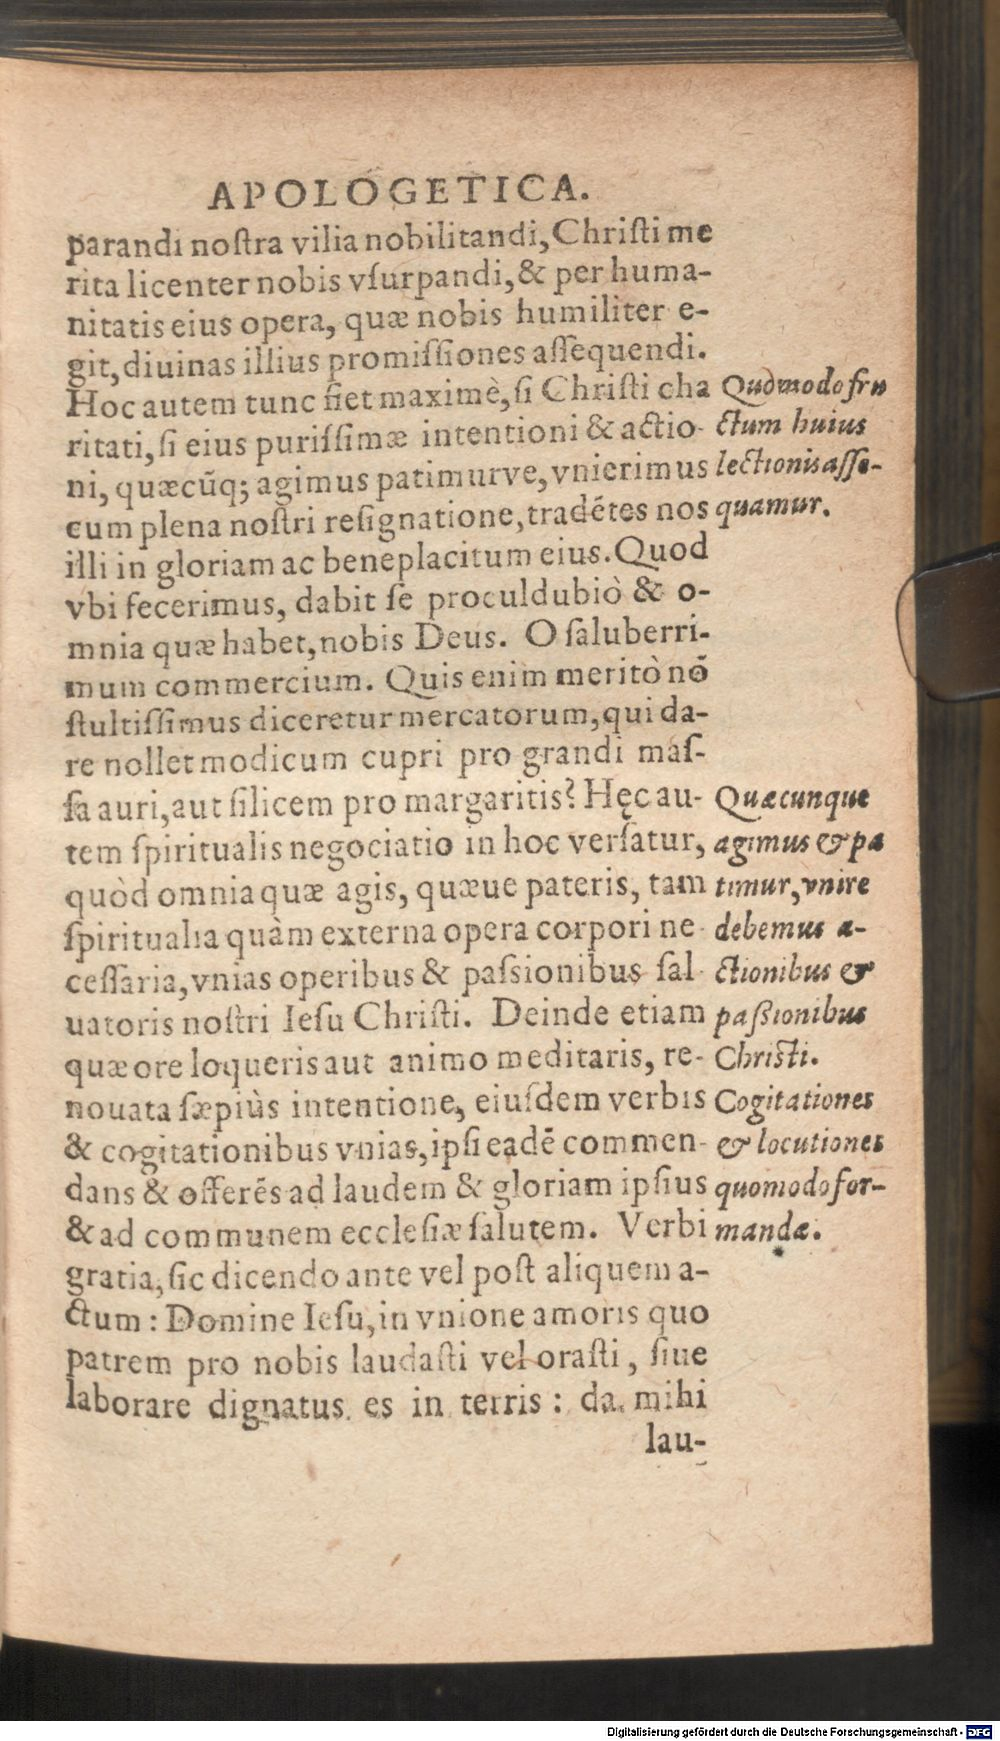 APOLOGETICA.
parandi noſtra vilia nobilitandi, Chriſti me
rita licenter nobis vſurpandi, & per huma-
nitatis eius opera, quæ nobis humiliter e-
git, diuinas illius promiſſiones aſſequendi.
Hoc autem tunc fiet maximè, ſi Chriſti cha
ritati, ſi eius puriſſimæ intentioni & actio-
ni, quæcũq; agimus patimurve, vnierimus
cum plena noſtri reſignatione, tradẽtes nos
illi in gloriam ac beneplacitum eius. Quod
vbi fecerimus, dabit ſe proculdubiò & o-
mnia quæ habet, nobis Deus. O ſaluberri-
mum commercium. Quis enim meritò nõ
ſtultiſſimus diceretur mercatorum, qui da-
re nollet modicum cupri pro grandi maſ-
ſa auri, aut ſilicem pro margaritis? Hęc au-
tem ſpiritualis negociatio in hoc verſatur,
quòd omnia quæ agis, quæue pateris, tam
ſpiritualia quàm externa opera corpori ne-
ceſſaria, vnias operibus & paſsionibus ſal-
uatoris noſtri Ieſu Chriſti. Deinde etiam
quæ ore loqueris aut animo meditaris, re-
nouata ſæpiùs intentione, eiuſdem verbis
& cogitationibus vnias, ipſi eadẽ commen-
dans & offerẽs ad laudem & gloriam ipſius
& ad communem eccleſiæ ſalutem. Verbi
gratia, ſic dicendo ante vel poſt aliquem a-
ctum: Domine Ieſu, in vnione amoris quo
patrem pro nobis laudaſti vel oraſti, ſiue
laborare dignatus es in terris: da mihi
lau-
Quomodo fru
ctum huius
lectionis aſſe-
quamur.
Quæcunque
agimus & pa
timur, vnire
debemus a-
ctionibus &
paßionibus
Chriſti.
Cogitationes
& locutiones
quomodo for-
mandæ.
Digitalisierung gefördert durch die Deutsche Forschungsgemeinschaft - DFG